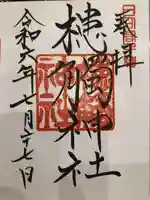 奉拝
槵觸神社
令和六年七月二十七日